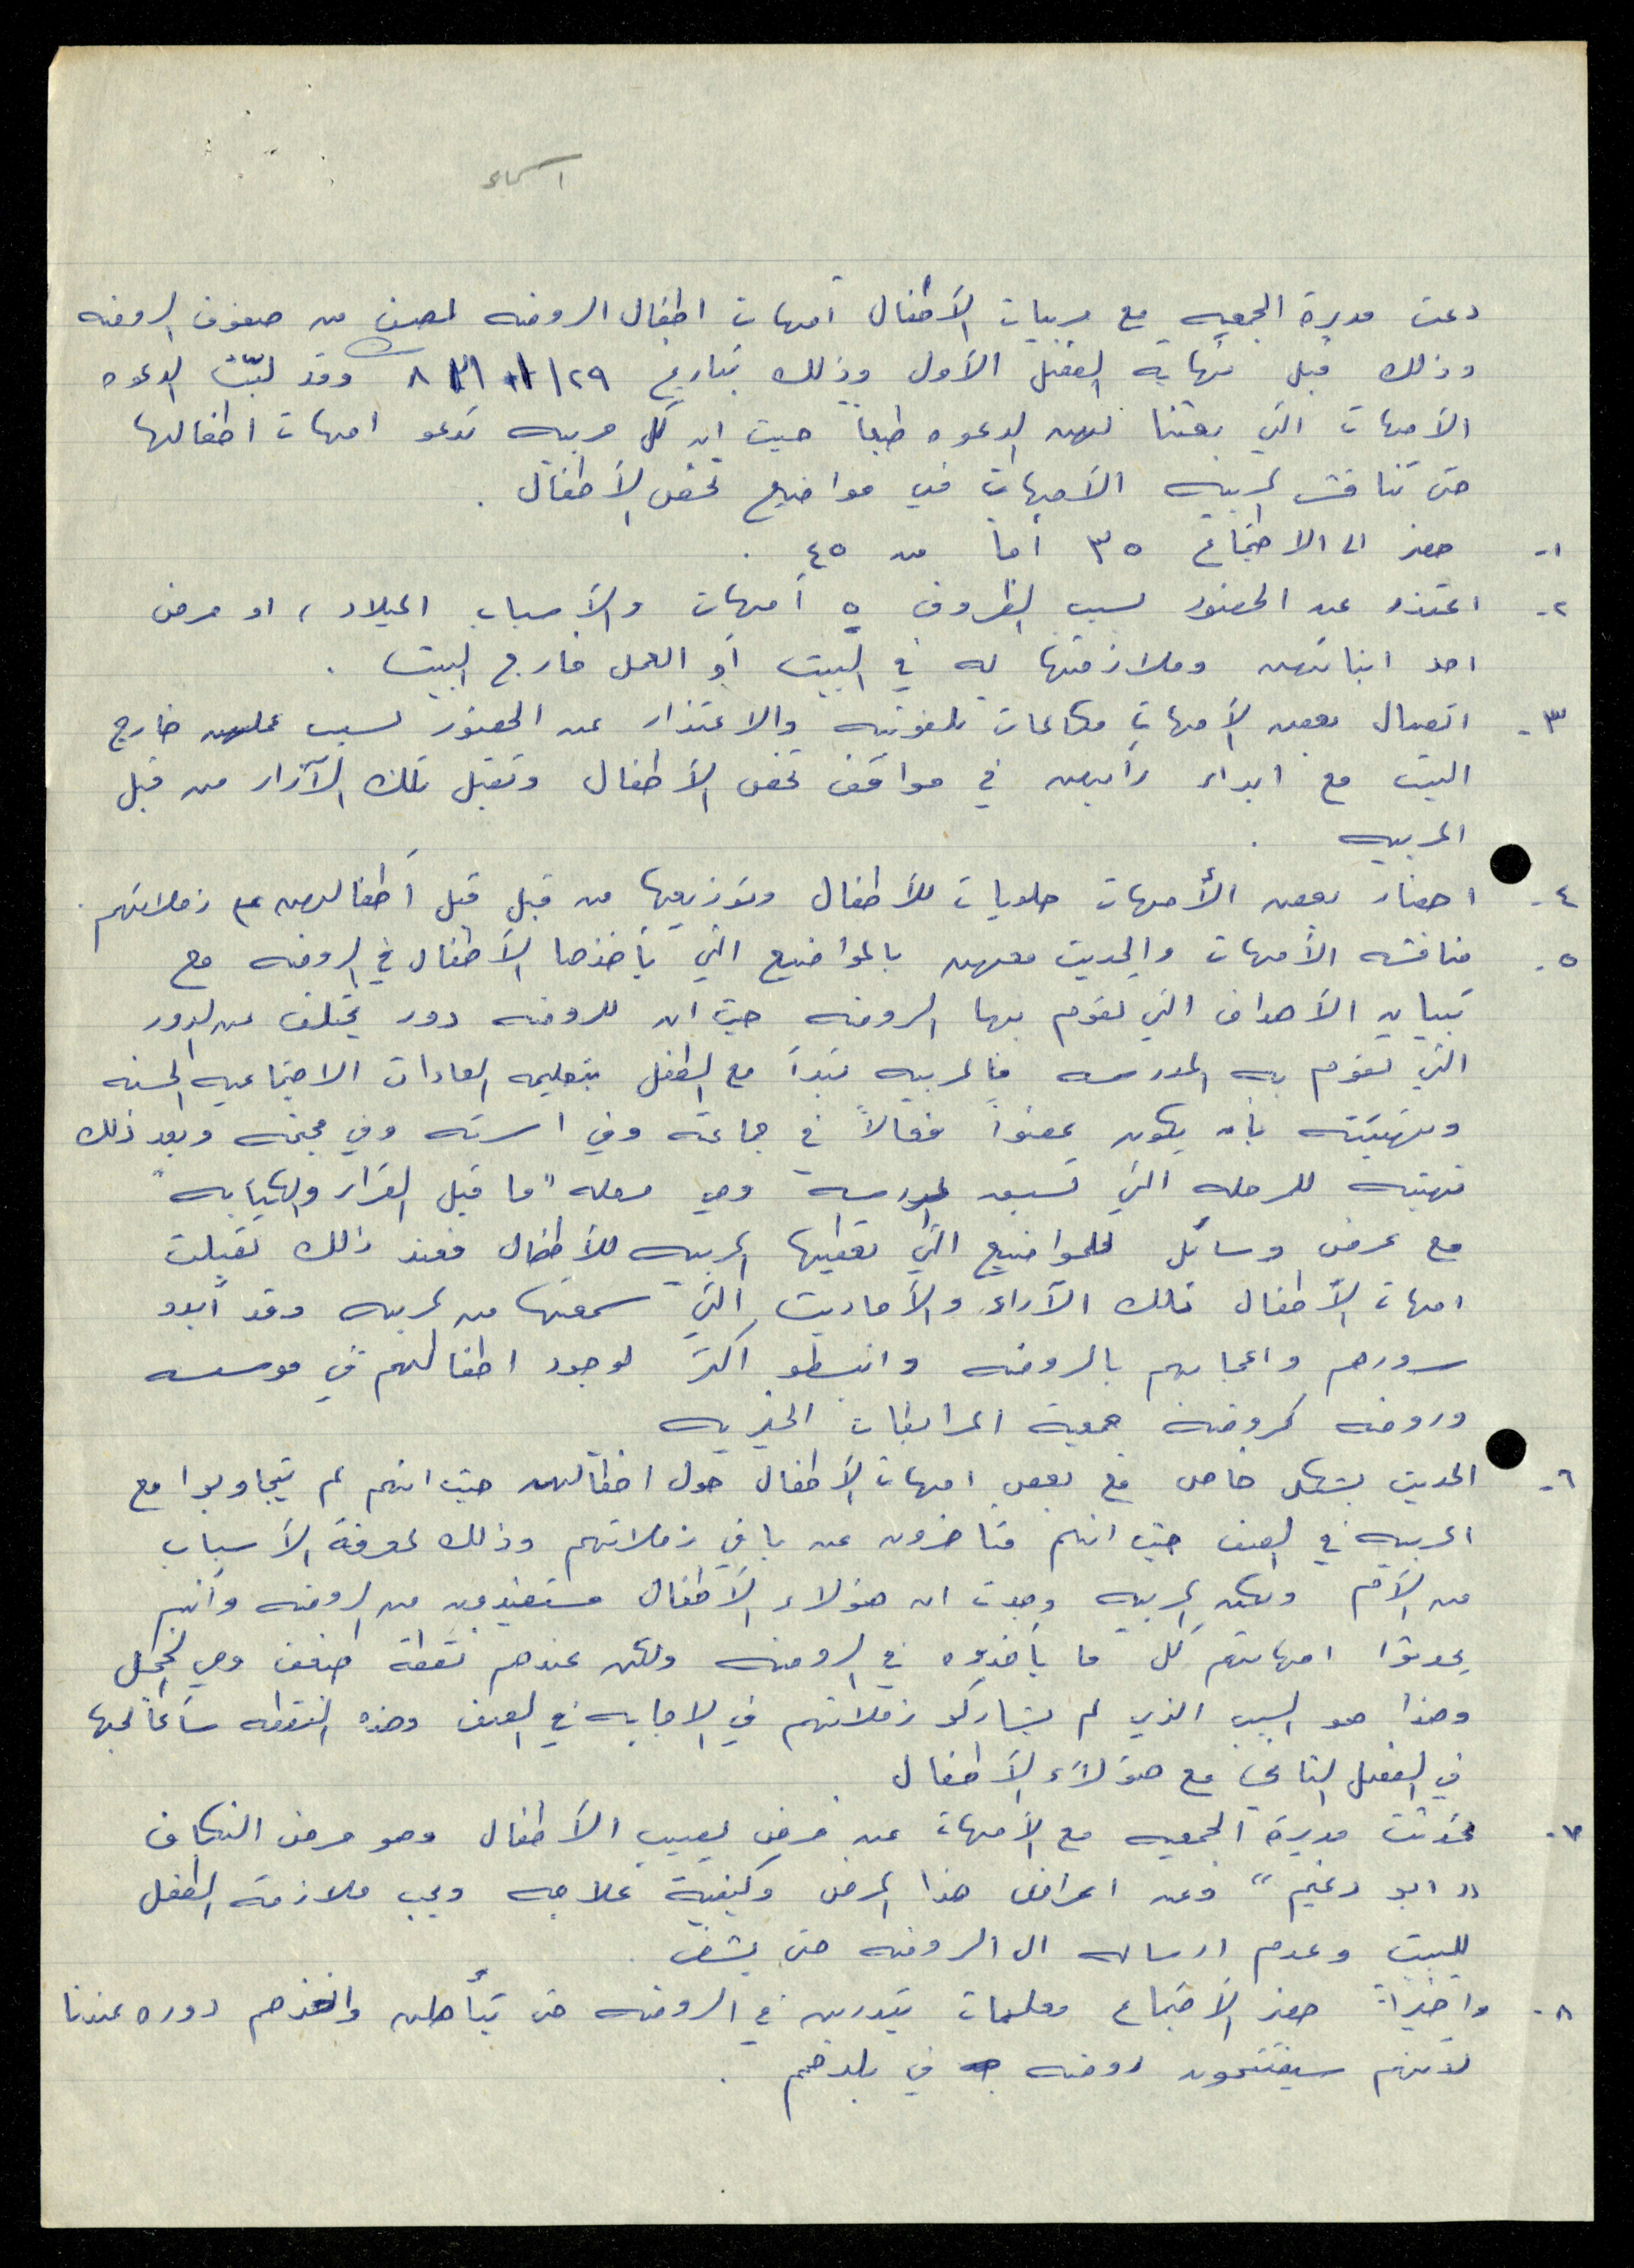 اسماء
دعت مديرة الجمعيه مع مربيات الأطفال أمهات اطفال الروضه لصف من صفوف الروضه
وذلك قبل نهايه الفصل الأول وذلك بتاريخ ٢٩/ وقد لبّت الدعوه
الأمهات التي بعثنا لهن الدعوه طبعاً حيث ان كل مربيه تدعو امهات اطفالها
حتى تناقش المربيه الأمهات في مواضيع تخص الأطفال .
١- حضر الى الاجتماع ٣٥ أماً من ٤٥ .
٢- اعتذر عن الحضور لسبب الظروف ٥ أمهات والأسباب الميلاد ، او مرض
احد ابنائهن وملازمتها له في البيت أو العمل خارج البيت .
٣- اتصال بعض الأمهات مكالمات تلفونيه والاعتذار عن الحضور لسبب عملهن خارج
البيت مع ابداء رأيهن في مواقف تخص الأطفال وتقبل تلك الآراء من قبل
المربيه .
٤- احضار بعض الأمهات حلويات للأطفال وتوزيعها من قبل قبل أطفالهن على زملائهم .
٥- مناقشه الأمهات والحديث معهن بالمواضيع التي يأخذها الأطفال في الروضه مع
تبيان الأهداف التي تقوم بها الروضه حيث ان للروضه دور يختلف عن الدور
التي تقوم به المدرسه فالمربيه تبدأ مع الطفل بتعليمه العادات الاجتماعيه الحسنه
وتهيئته بأن يكون عضواً فعالاً في جماعته وفي اسرته وفي مجتمعه وبعد ذلك
تهيئه للمرحله التي تسبق المدرسه وهي مرحله "ما قبل القراءه والكتابه"
مع عرض وسائل للمواضيع التي تعطيها المربيه للأطفال فعند ذلك تقبلت
امهات الأطفال تلك الآراء والأحاديث التي سمعتها من المربيه وقد أبدو
سرورهم واعجابهم بالروضه وانبسطو اكثر لوجود اطفالهم في موسسه
وروضه كروضة جمعية المرابطات الخيريه
٦- الحديث بشكل خاص مع بعض امهات الأطفال حول اطفالهن حيث انهم لم يتجاوبوا مع
المربيه في الصف حيث انهم متأخرون عن باقي زملائهم وذلك لمعرفة الأسباب
من الأم ولكن المربيه وجدت ان هؤلاء الأطفال مستفيدون من الروضه وأنهم
يحدثوا امهاتهم كل ما يأخذوه في الروضه ولكن عندهم نقطة ضعف وهي الخجل
وهذا هو السبب الذي لم يشاركو زملائهم في الاجابه في الصف وهذه النقطه سأعالجها
في الفصل الثاني مع هؤلاء الأطفال .
٧- تحدثت مديرة الجمعيه مع الأمهات عن مرض يصيب الأطفال وهو مرض النكاف
"ابو دغيم" وعن اعراض هذا المرض وكيفية علاجه ويجب ملازمة الطفل
للبيت وعدم ارساله الى الروضه حتى يشفى .
٨- واخيراً حضر الأجتماع معلمات يتدربن في الروضه حتى يتأهلن واخذهم دوره عندنا
لأنهم سيفتتحون روضه في بلدهم .